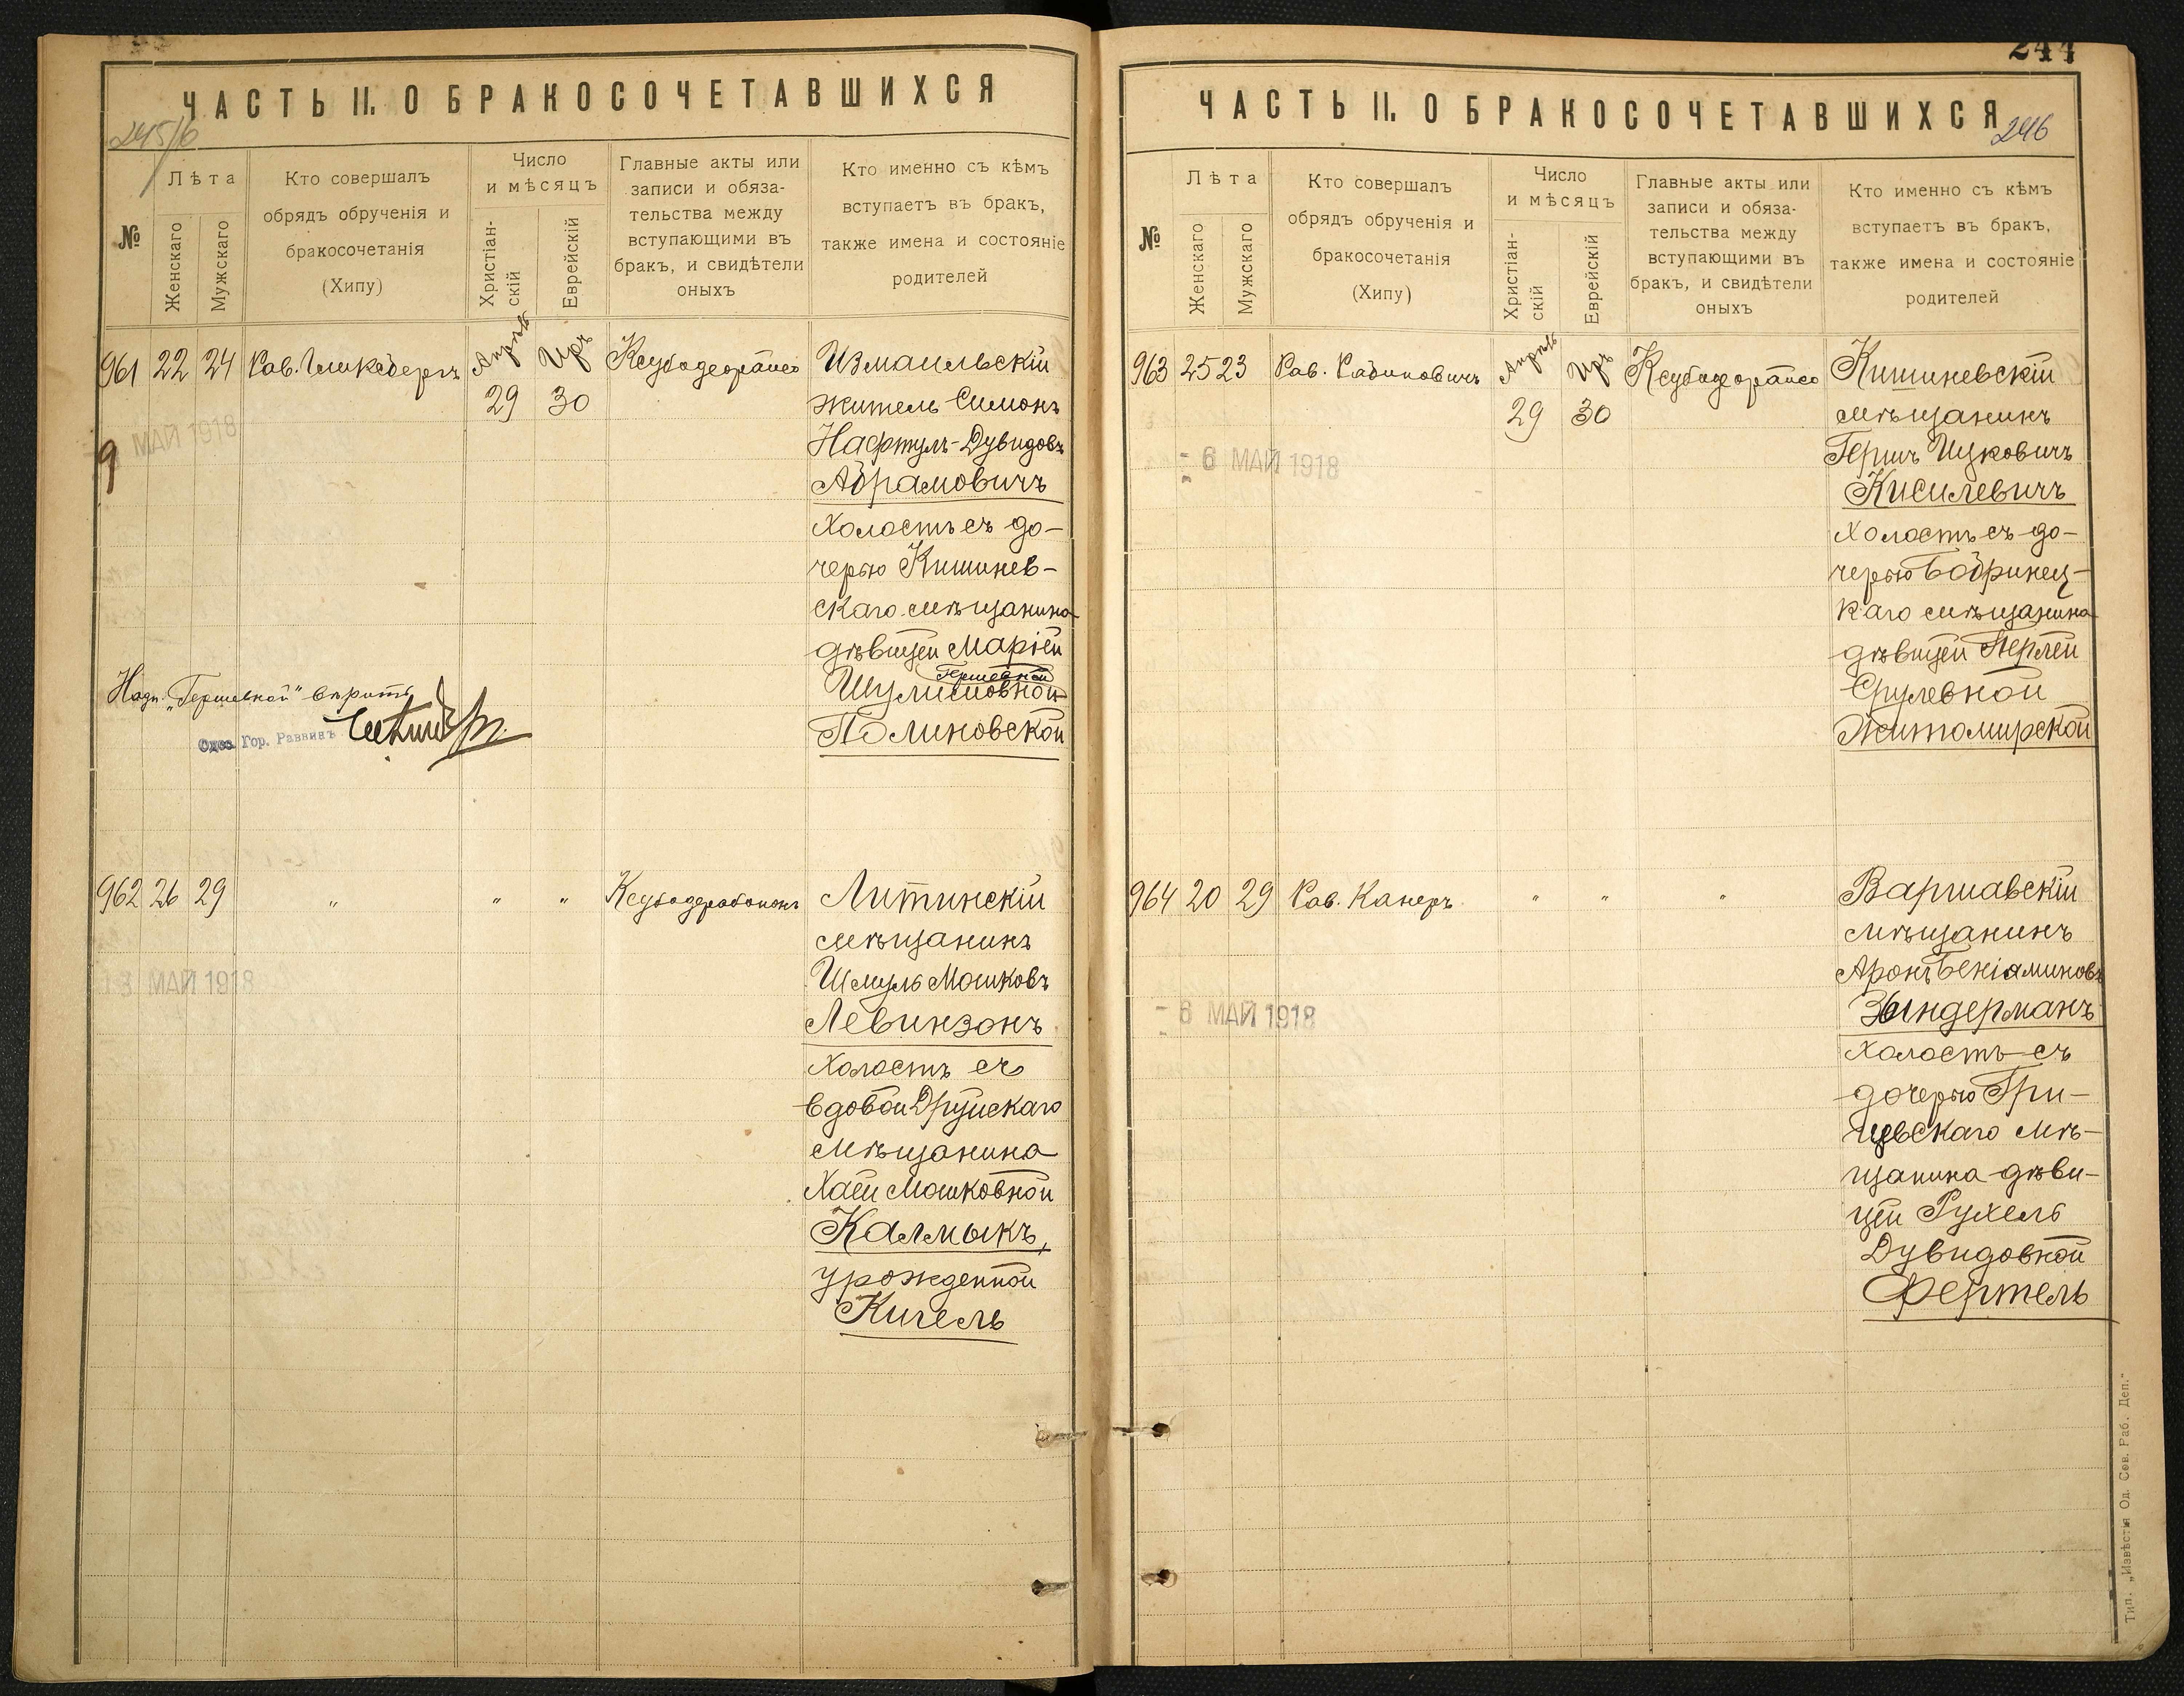 ЧАСТЬ II. О БРАКОСОЧЕТАВШИХСЯ
245/6
№
Лѣта
Женскаго
Мужскаго
Кто совершалъ
обрядъ обрученія и
бракосочетанія
(Хипу)
Число
и мѣсяцъ
Христіан-
скій
Еврейскій
Главные акты или
записи и обяза-
тельства между
вступающими въ
бракъ, и свидѣтели
оныхъ
Кто именно съ кѣмъ
вступаетъ въ бракъ,
также имена и состояніе
родителей
961 22 24 Рав. Гликсбергъ Апрѣль Иръ Ксубодеорайсо Измаильскій
29 30 житель Симонъ
МАЙ 1918
9
Нафтулъ-Дувидовъ
Абрамовичъ
холостъ съ до-
черью Кишинев-
скаго мѣщанина
дѣвицей Маріей
Гершевной
Шулимовной
Полиновской
Надп. „Гершевной" вѣрить
Гор. Раввинъ
962 26 29 " " " Ксубодерабононъ Литинскій
мѣщанинъ
МАЙ 1918
Шмуль Мошковъ
Левинзонъ
холостъ съ
вдовой Друйскаго
мѣщанина
Хаей Мошковной
Калмыкъ,
урожденной
Кигель
244
ЧАСТЬ II. О БРАКОСОЧЕТАВШИХСЯ
246
№
Лѣта
Женскаго
Мужскаго
Кто совершалъ
обрядъ обрученія и
бракосочетанія
(Хипу)
Число
и мѣсяцъ
Христіан-
скій
Еврейскій
Главные акты или
записи и обяза-
тельства между
вступающими въ
бракъ, и свидѣтели
оныхъ
Кто именно съ кѣмъ
вступаетъ въ бракъ,
также имена и состояніе
родителей
963 25 23 Рав. Рабиновичъ Апрѣль Иръ Ксубодеорайсо Кишиневскій
29 30 мѣщанинъ
- 6 МАЙ 1918
Гершъ Ицковичъ
Кисилевичъ
холостъ съ до-
черью Бобринец-
каго мѣщанина
дѣвицей Перлей
Срулевной
Житомирской
964 20 29 Рав. Канеръ " " " Варшавскій
мѣщанинъ
Аронъ Беніаминовъ
- 6 МАЙ 1918
Зындерманъ
холостъ съ
дочерью Гри-
цевскаго мѣ-
щанина дѣви-
цей Рухель
Дувидовной
Фертель
Тип. „Извѣстія Од. Сов. Раб. Деп."